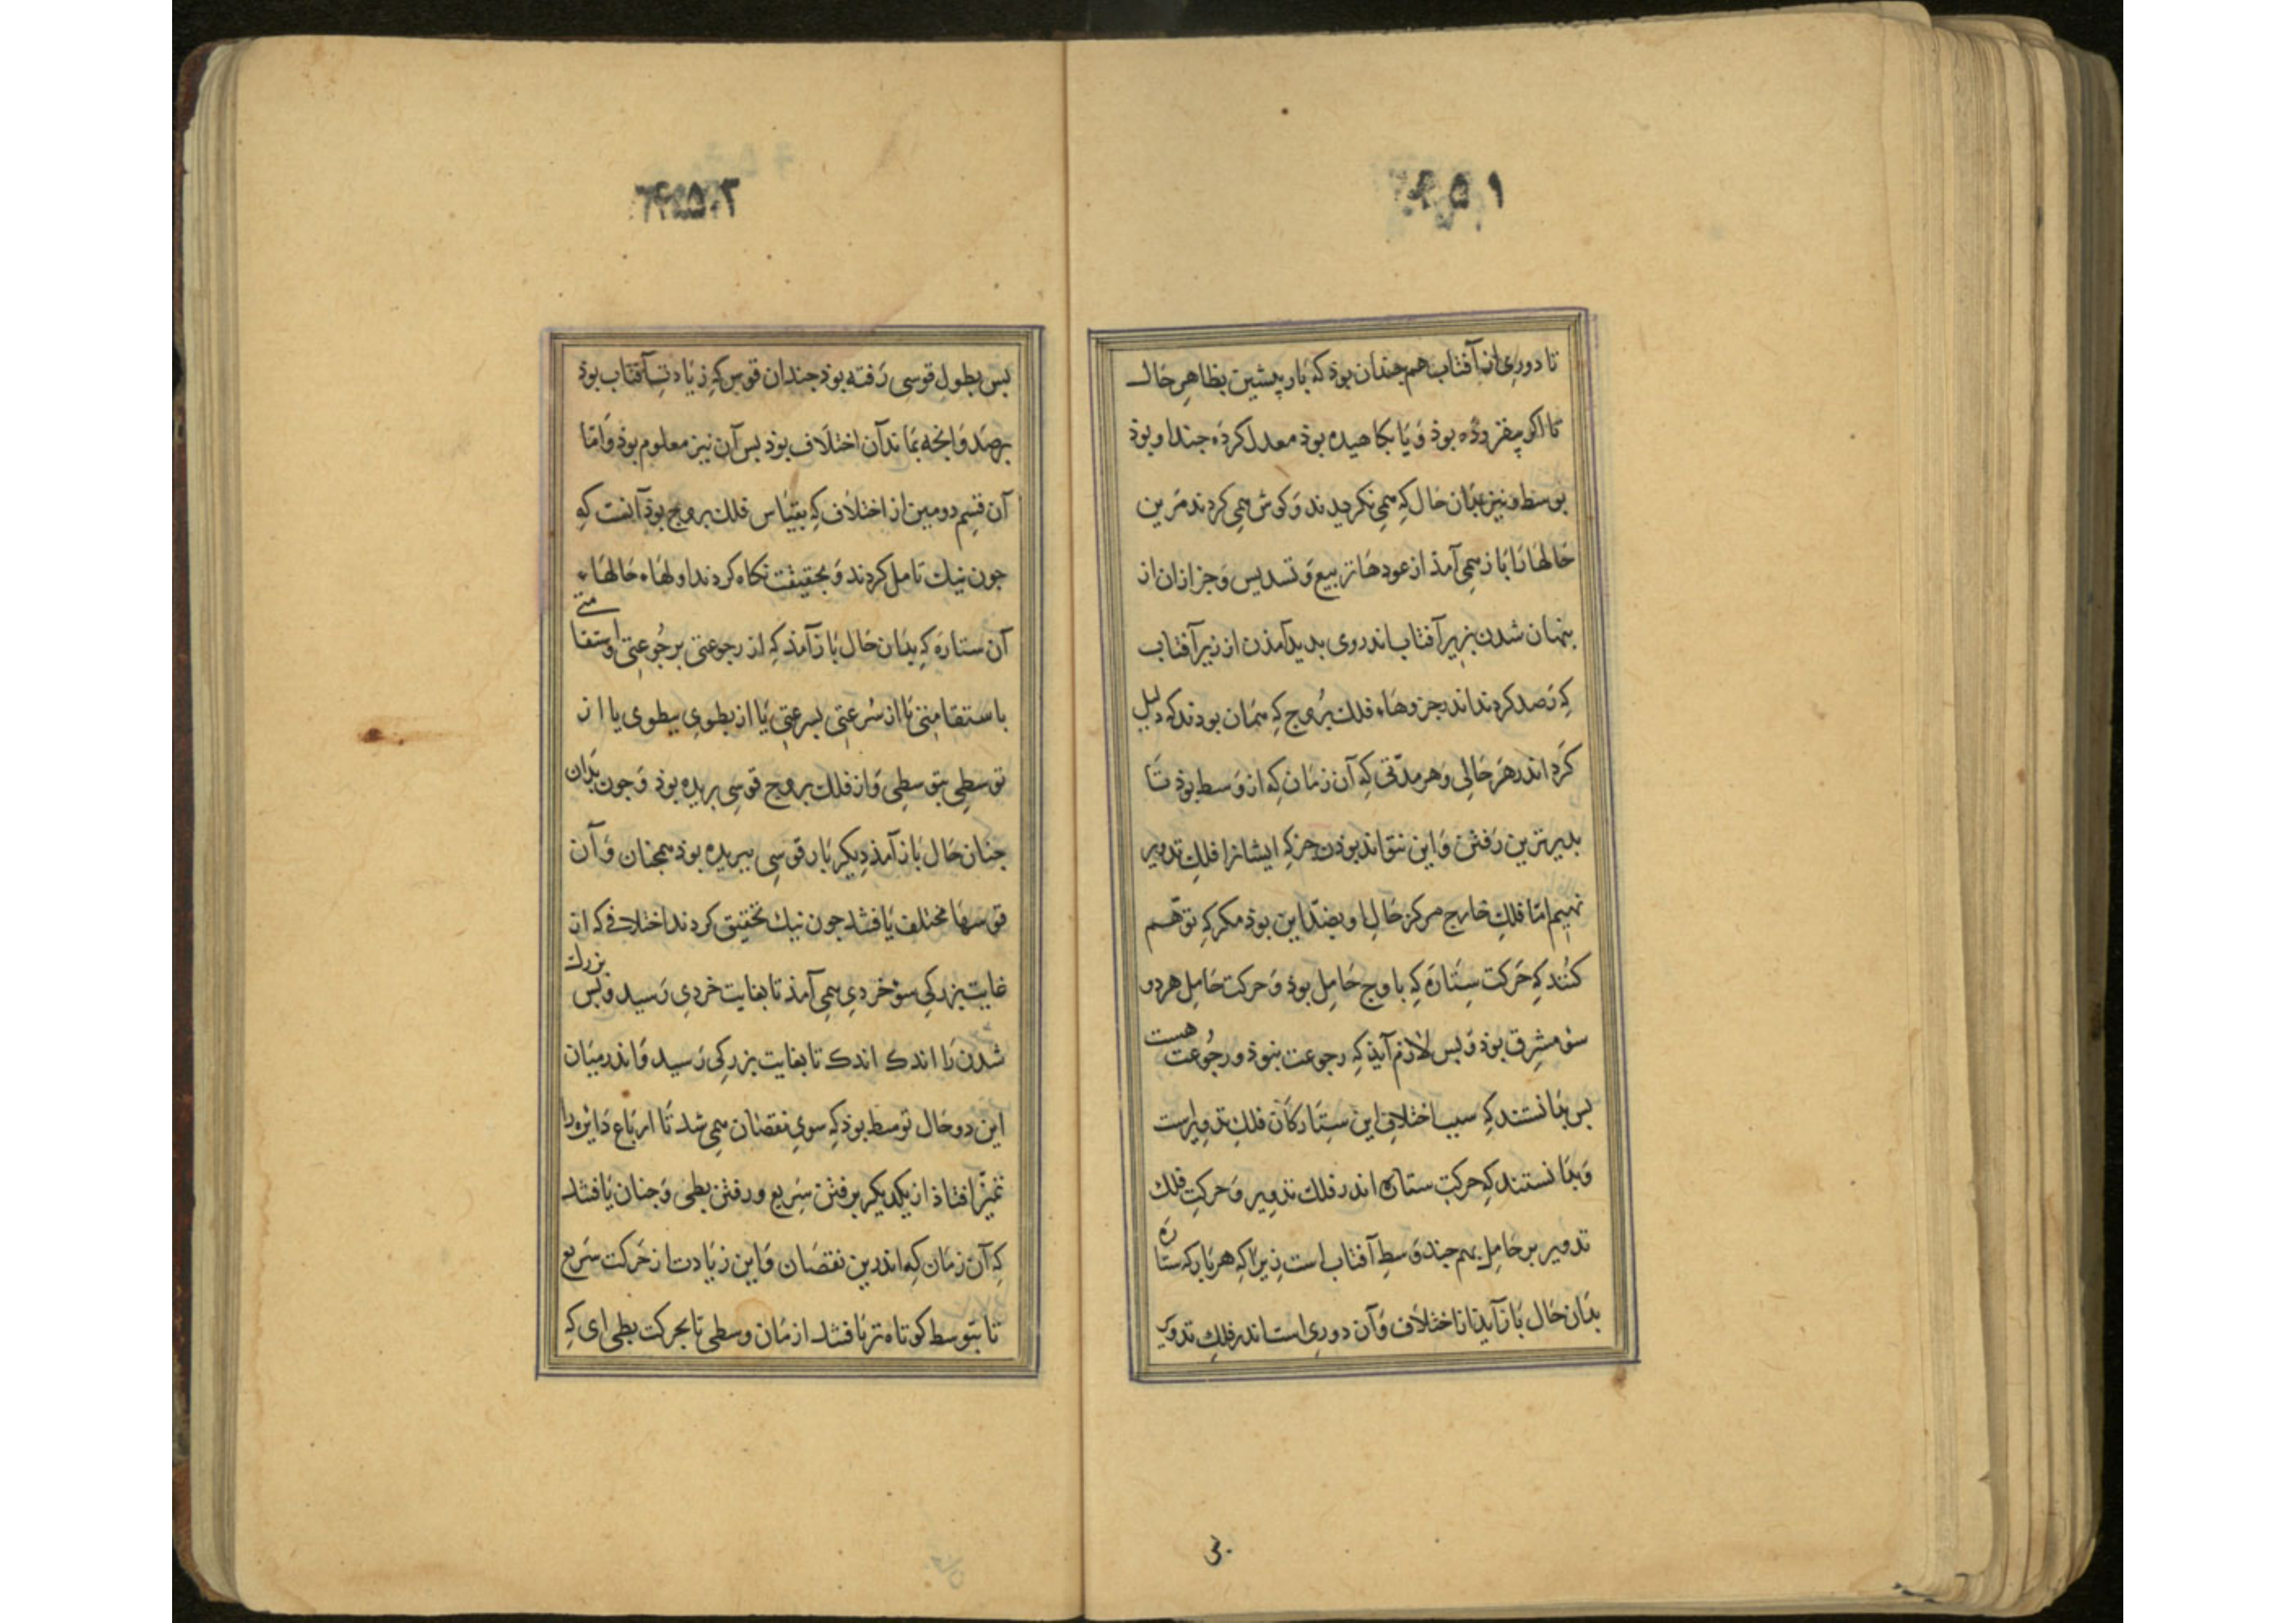 تا دوری از آفتاب هم جندان بوذ که بار پیشین بظاهر حال
تا اکو بیفزوده بوذ و یا بکاهیده بوذ معدل کرده جند او بوذ
بوسط و نیز بدان حال که همی نکریدند و کوش همی کردند مرین
حالها را باز همی آمذ از عودها تربیع و تسدیس و جزازان از
بنهان شدن بزیر آفتاب اندر وی بدید آمذن از زیر آفتاب
که رصد کردند اندر جزوهاء فلک بروج که همان بودند که دلیل
کرد اندر هر حالی و هر مدتی که آن زمان که از وسط بوذ تا
بدیرترین رفتن و این نتواند بوذن جز که ایشانرا فلک تدویر
نهیم اما فلک خارج مرکز حال او بضد این بوذ مکر که توهم
کنند که حرکت ستاره که باوج حامل بوذ و حرکت حامل هر دو
سو مشرق بوذ و بس لازم آیذ که رجوعت نبوذ و رجوعت هست
بس بدانستند که سبب اختلاف این ستارکان فلک تدویر است
و بدانستند که حرکت ستاره اندر فلک تدویر و حرکت فلک
تدویر بر حامل بهم جند وسط آفتاب است زیرا که هر بار که ستاره
بدان حال باز آید تا اختلاف و آن دوری است اندر فلک تدویر
بس بطول قوسی رفته بوذ جندان قوس که زیادت آفتاب بوذ
برصد و انجه بماند آن اختلاف بوذ بس آن نیز معلوم بوذ و اما
آن قسم دومین از اختلاف که بقیاس فلک بروج بوذ آنست که
جون نیک تامل کردند و بحقیقت نکاه کردند اولهاء حالهاء
آن ستاره که بدان حال باز آمذ که از رجوعتی برجوعتی و استقامتی
باستقامتی تا از سرعتی بسرعتی یا از بطوی ببطوی یا از
توسطی بتوسطی و از فلک بروج قوسی بریده بوذ و جون بدان
جنان حال باز آمذ دیکر بار قوسی ببریده بوذ همجنان و آن
قوسها مختلف یافتند جون نیک تحقیق کردند اختلافی که از
غایت بزرکی سو خردی همی آمذ تا بغایت خردی رسید و بس بزرک
شدن را اندک اندک تا بغایت بزرکی رسید و اندر میان
این دو حال توسط بوذ که سوی نقصان همی شد تا ارباع دایره را
تمیز افتاذ از یکدیکر برفتن سریع و رفتن بطی و جنان یافتند
که آن زمان که اندرین نقصان و این زیادت از حرکت سریع
تا بتوسط کوتاه تر یافتند از زمان وسطی تا بحرکت بطی ای که